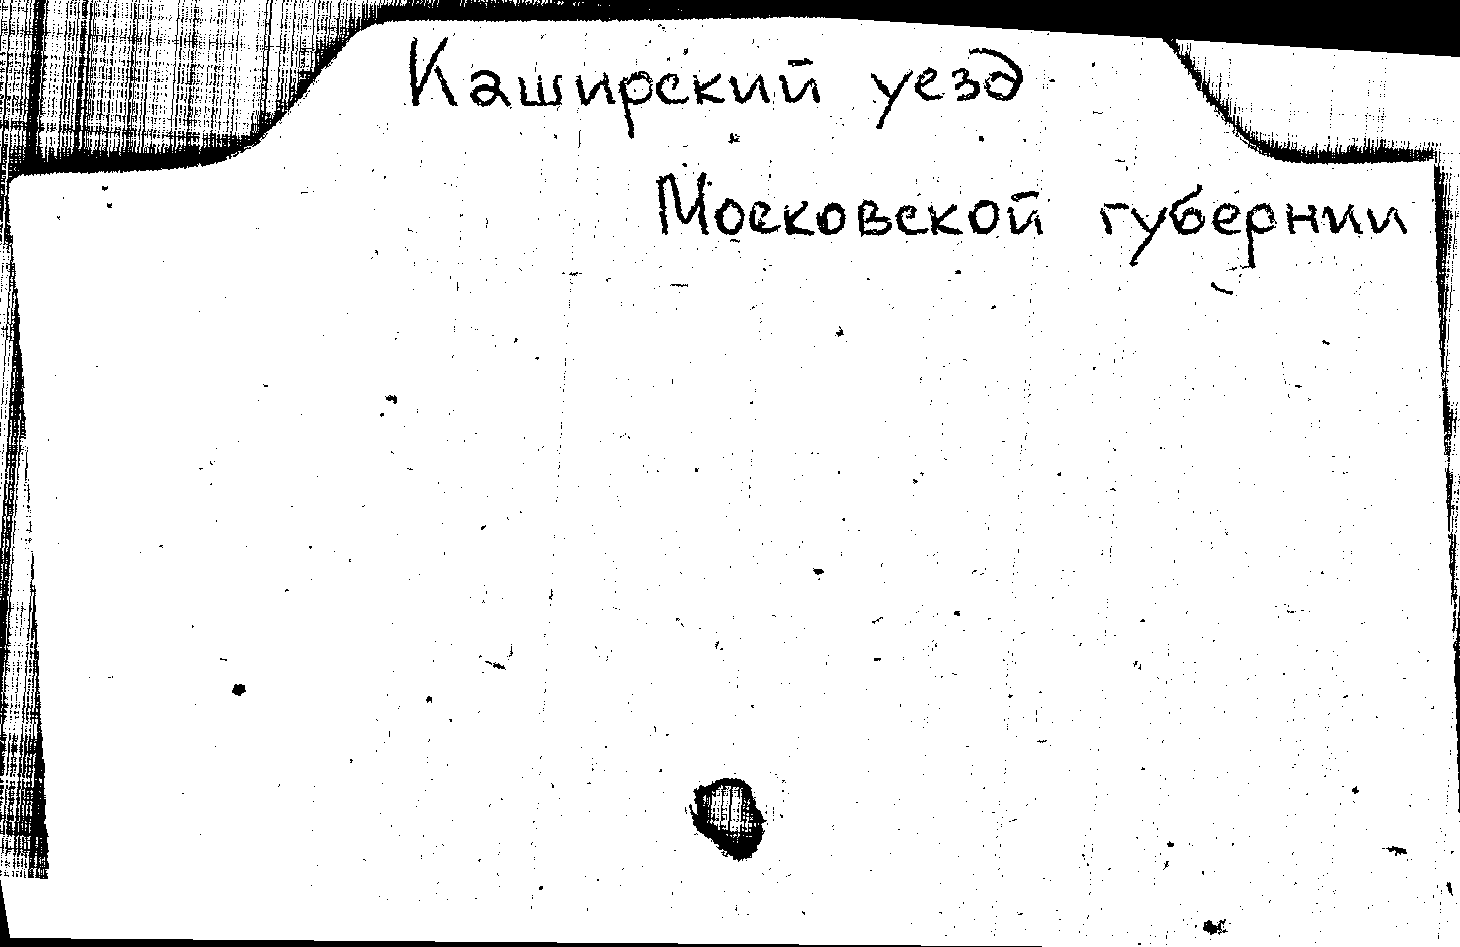 Каширский уезд
Московской губернии